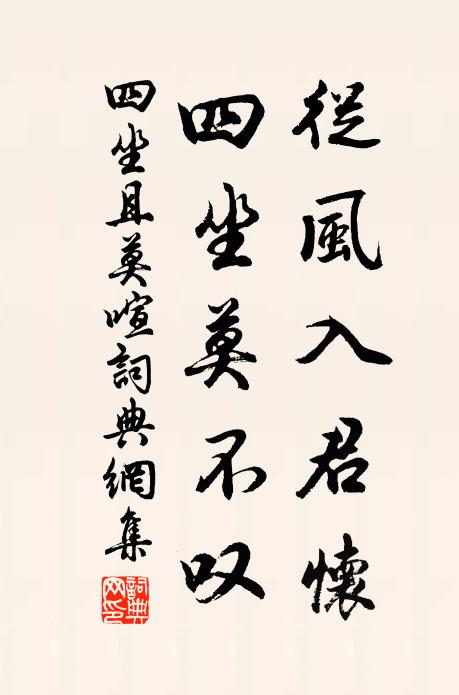 從風入君懷
四坐莫不叹
四坐且莫喧詞典網集
詞典網印